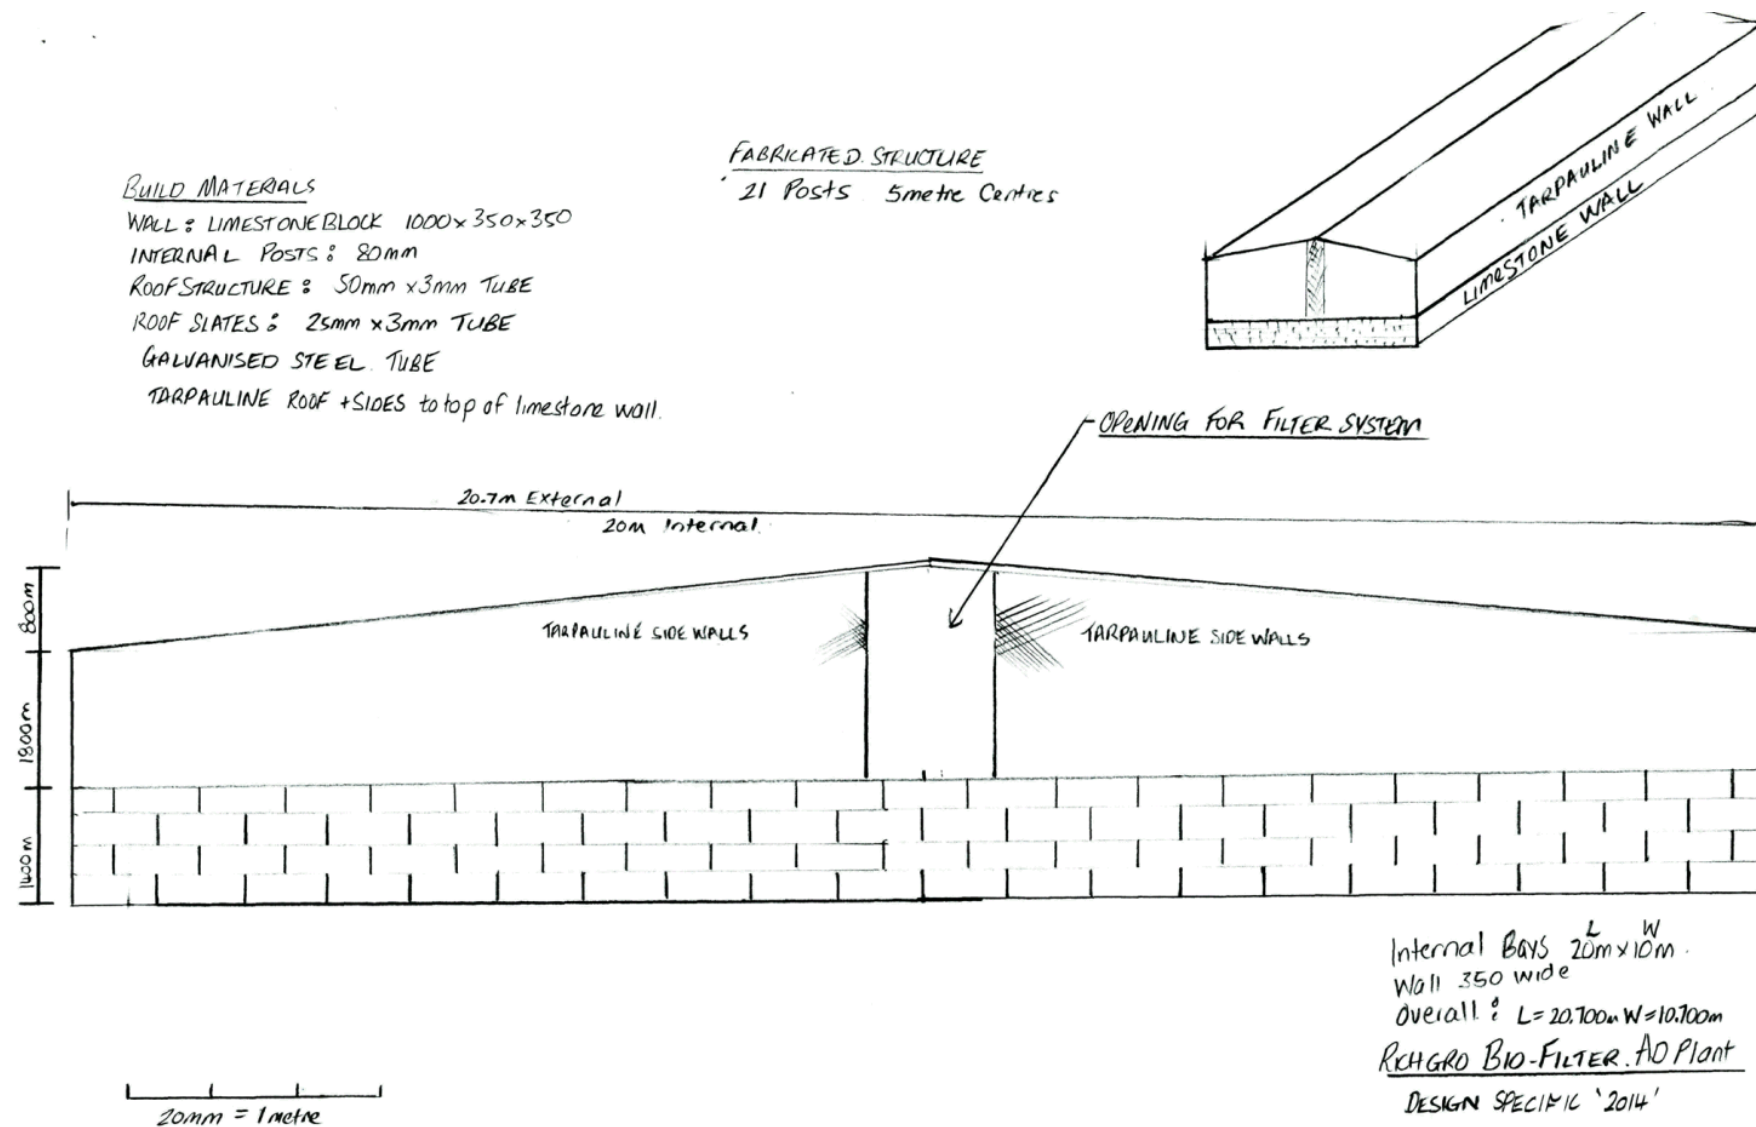 BUILD MATERIALS
WALL: LIMESTONE BLOCK 1000 x 350 x 350
INTERNAL POSTS: 80mm
ROOF STRUCTURE: 50mm x 3mm TUBE
ROOF SLATES: 25mm x 3mm TUBE
GALVANISED STEEL TUBE
TARPAULINE ROOF + SIDES to top of limestone wall.
FABRICATED. STRUCTURE
21 Posts 5metre Centres
TARPAULINE WALL
LIMESTONE WALL
OPENING FOR FILTER SYSTEM
20.7m External
20m Internal.
800m
1800m
1400m
TARPAULINE SIDE WALLS
TARPAULINE SIDE WALLS
L W
Internal Bays 20m x 10m.
Wall 350 wide
Overall: L= 20.700m W=10.700m
RICHGRO BIO-FILTER. AD Plant
DESIGN SPECIFIC '2014'
20mm = 1 metre